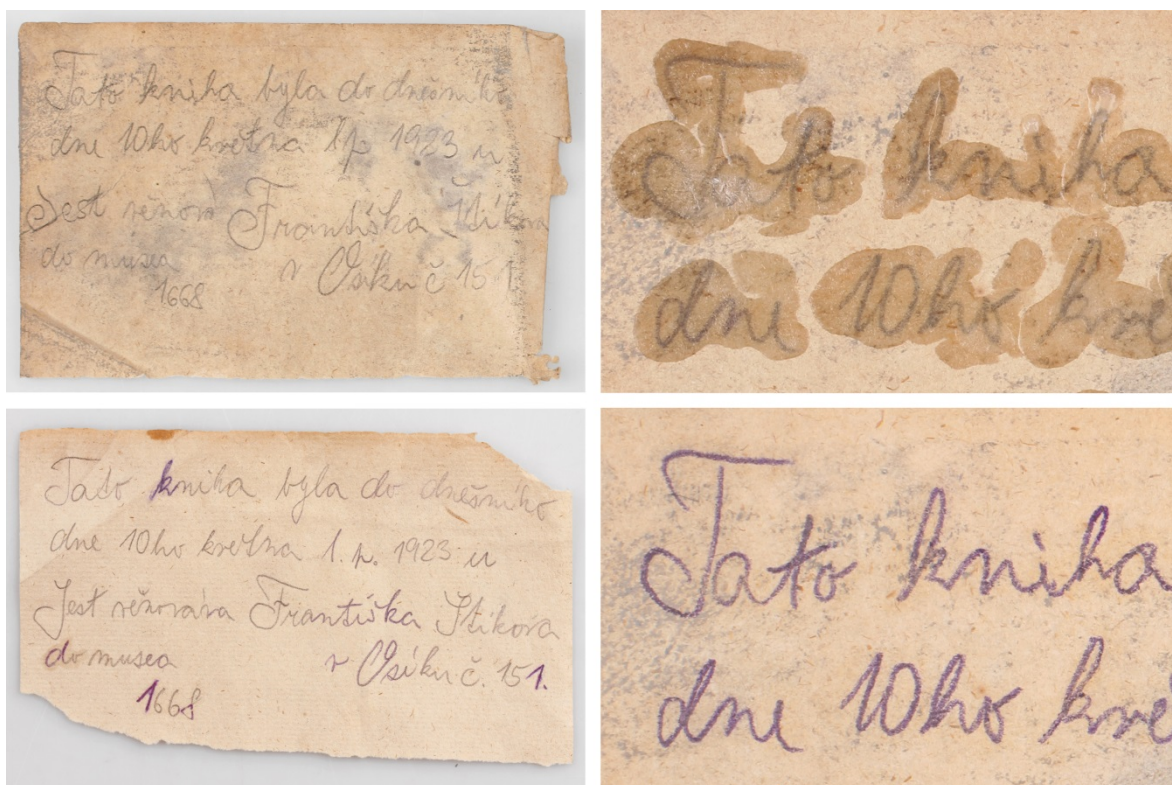 Tato kniha byla do dnešního
dne 10ho května l.p. 1923 u
Jest věnová Františka Štikova
do musea v Osíku č 151
1668
Tato kniha
dne 10ho kvě
Tato kniha byla do dnešního
dne 10ho května l.p. 1923 u
Jest věnována Františka Štikova
do musea v Osíku č. 151.
1668
Tato kniha
dne 10ho kvě